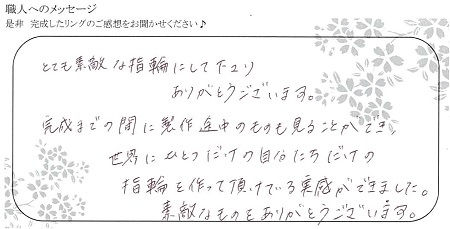 職人へのメッセージ
是非 完成したリングのご感想をお聞かせください♪
とても素敵な指輪にして下さり
ありがとうございます。
完成までの間に製作途中のものも見ることができ、
世界にひとつだけの自分たちだけの
指輪を作って頂けている実感ができました。
素敵なものをありがとうございます。